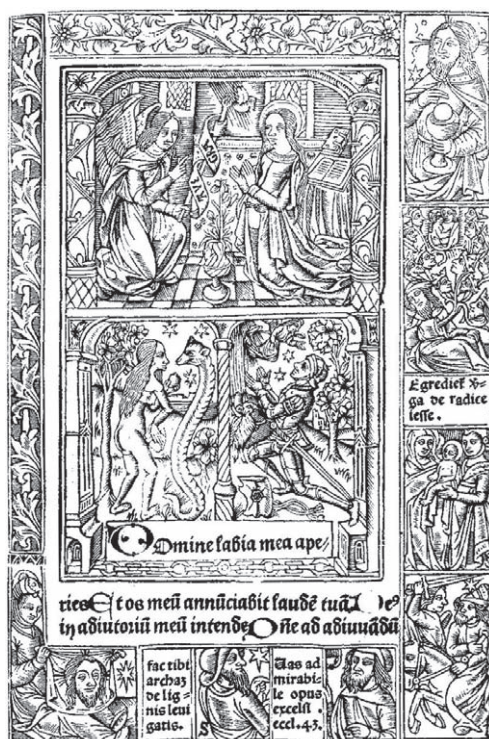 Egredieť v̄-
ga de radice
iesse.
Domine labia mea ape-
ries Et os meū annūciabit laudē tuā. Deꝰ
in adiutoriū meū intende Oñe ad adiuuādū
fac tibi
archaz
de lig=
nis leui
gatis.
Uas ad
mirabi=
le opus
excelsi.
eccl.43.